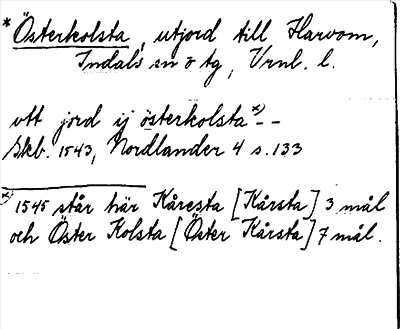 * Österkolsta, utjord till Harvom,
Indals sn o tg, Vrnl. l.
vtt jord ij österkolsta *) - -
Skb. 1543, Nordlander 4 s. 133
*) 1545 står här Kåresta [Kårsta] 3 mål
och Öster Kolsta [Öster Kårsta] 7 mål.